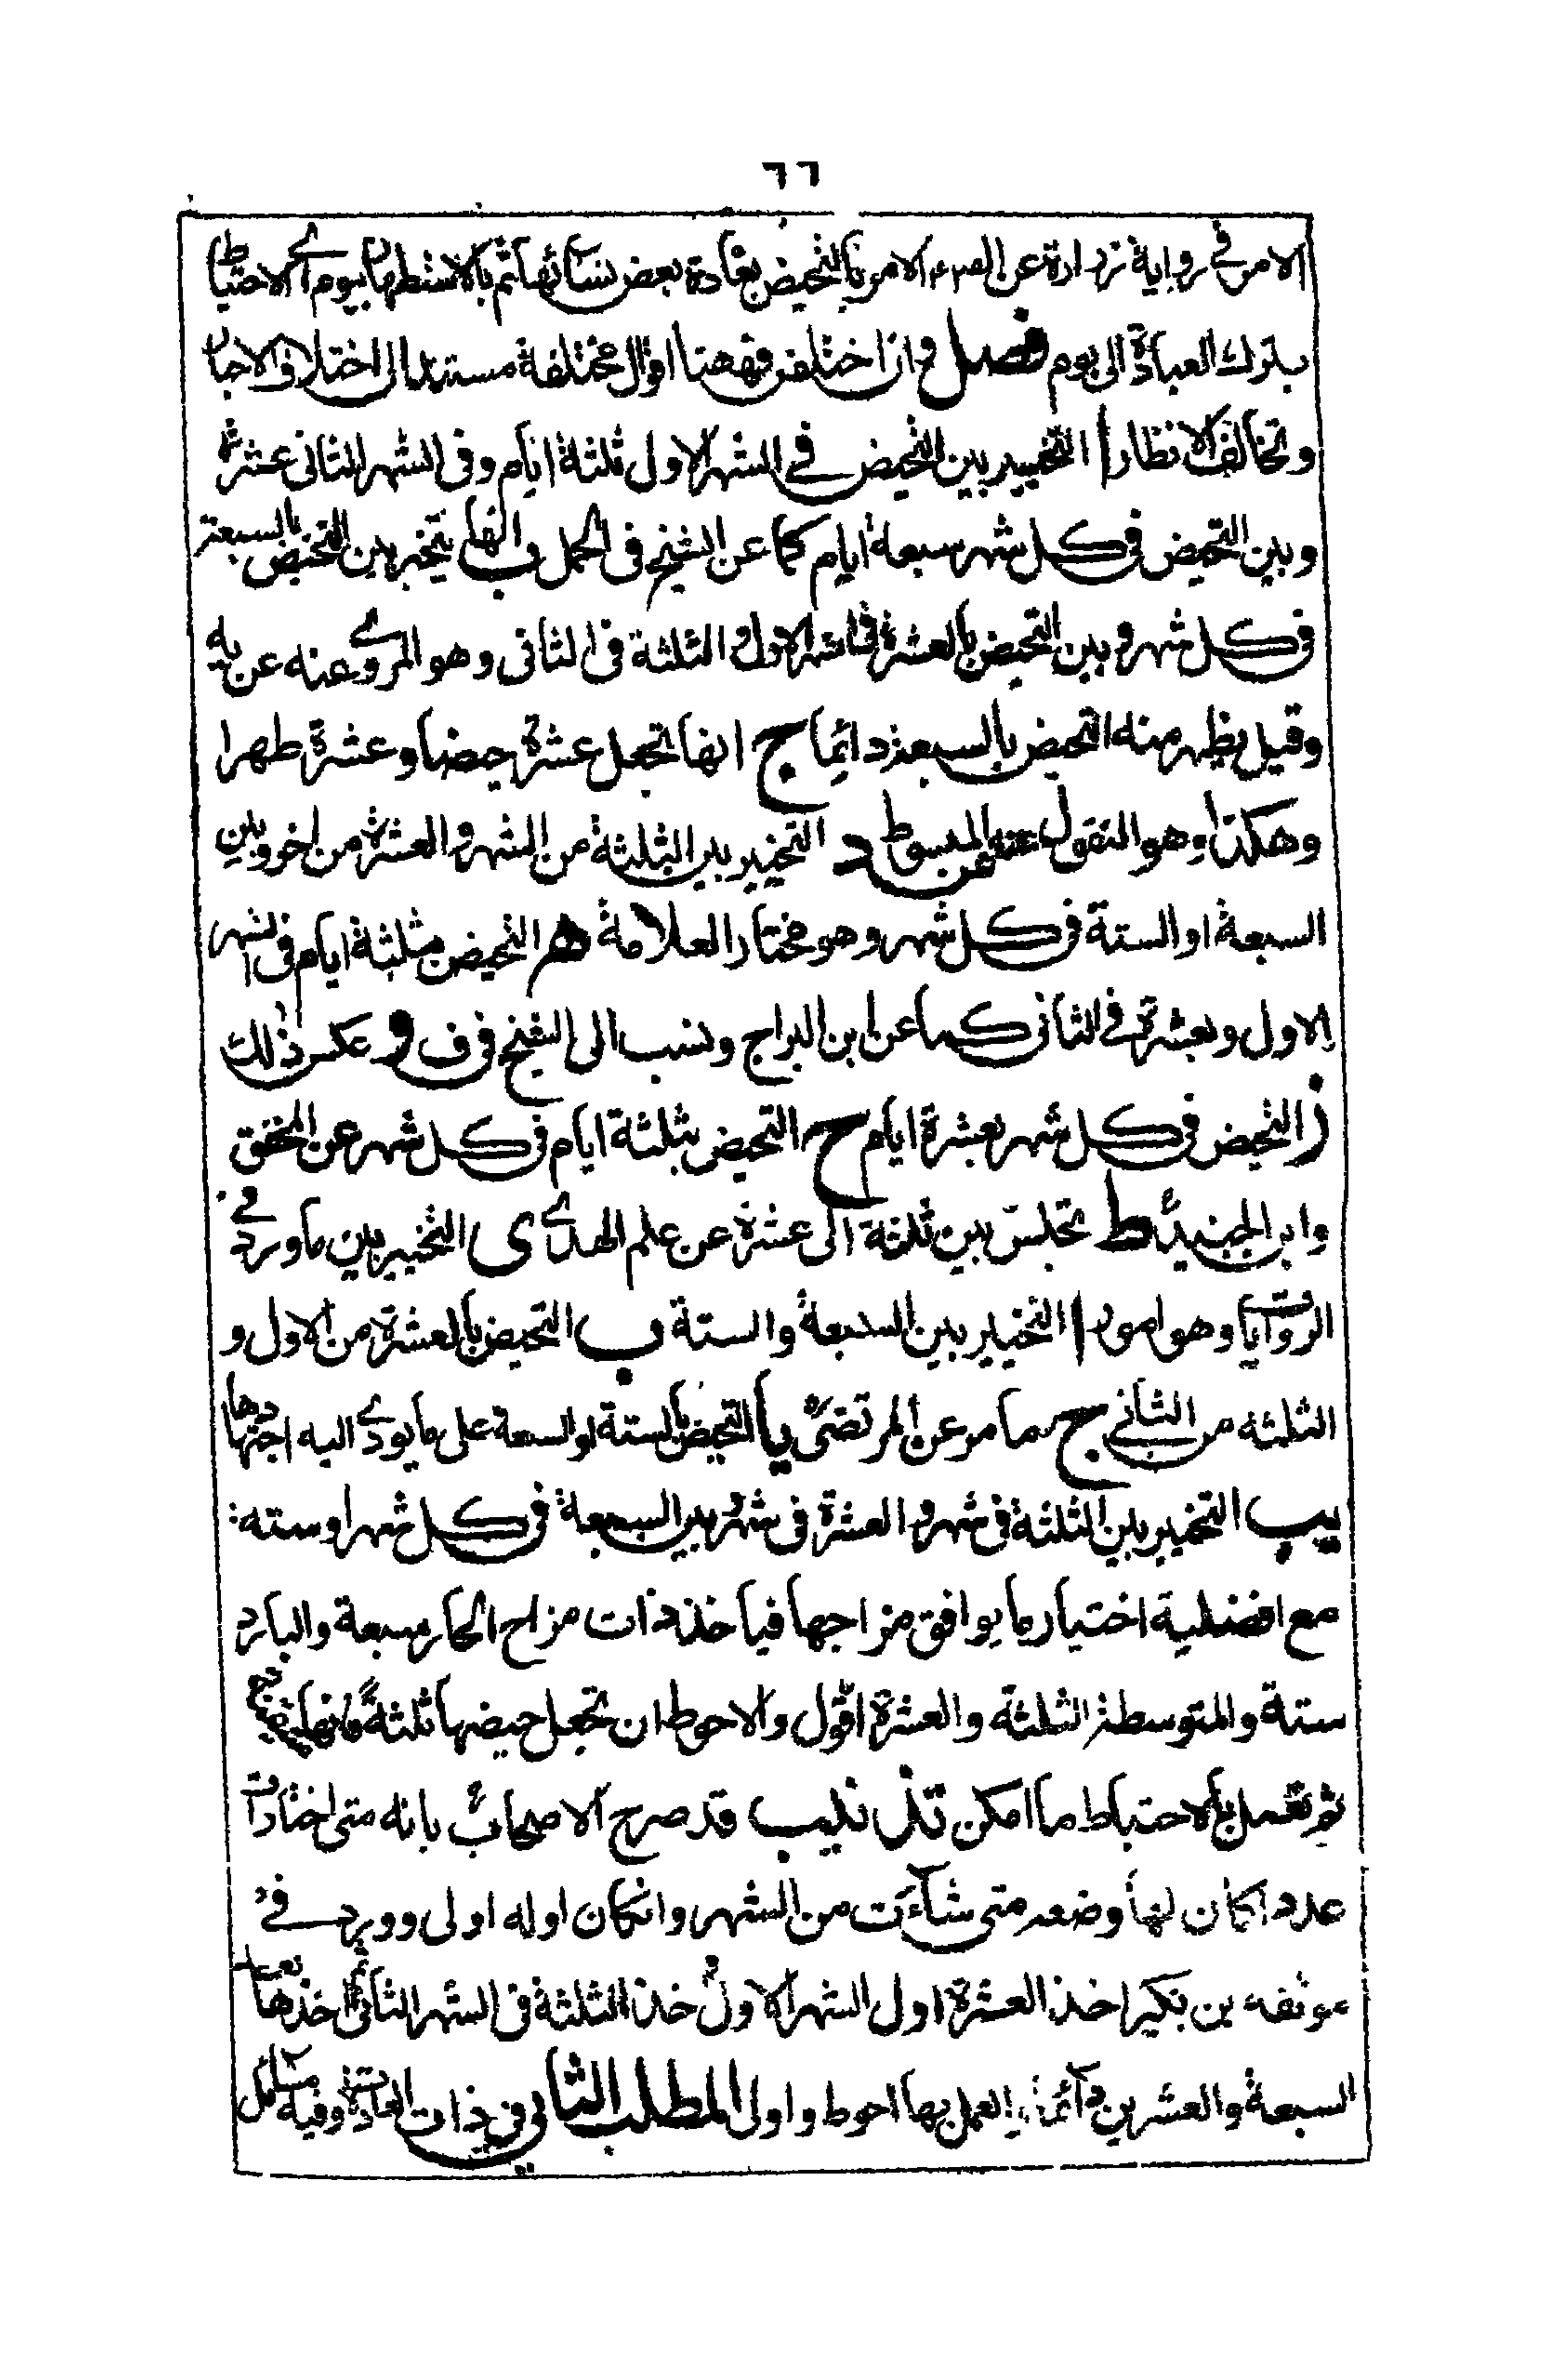 ٦٦
الامر في رواية زرارة عن الامر بالتحيض بعادة بعض نسائها ثم بالاستظهار بيوم الاحتياط
بترك العبادة الى يوم فصل وان اختلفن فههنا اقوال مختلفة مستندا الى اختلاف الاخبار
وتخالف الانظار ا التخيير بين التحيض في الشهر الاول ثلثة ايام وفى الشهر الثانى عشرة
وبين التحيض فى كل شهر سبعة ايام كما عن الشيخ فى الجمل ب انها يتخير بين التحيض بالسبعة
فى كل شهر وبين التحيض بالعشرة فى الشهر الاول والثلثة فى الثانى وهو المروى عنه عن يه
وقيل يظهر منه التحيض بالسبعة دائما ج انها تجعل عشرة حيضا وعشرة طهرا
وهكذا وهو المنقول عن المبسوط د التخيير بين الثلثة من الشهر والعشرة من اخر وبين
السبعة او الستة فى كل شهر وهو مختار العلامة هـ التحيض بثلثة ايام فى الشهر
الاول وبعشرة فى الثانى كما عن ابن البراج ونسب الى الشيخ فى ف و عكس ذلك
ز التحيض فى كل شهر بعشرة ايام ح التحيض بثلثة ايام فى كل شهر عن المحقق
وابن الجنيد ط تجلس بين ثلثة الى عشرة عن علم الهدى ى التخيير بين ما ورد في
الروايات وهو امور ا التخيير بين السبعة والستة ب التحيض بالعشرة من الاول و
الثلثة من الثانى ج ما مر عن المرتضى يا التحيض بالستة او السبعة على ما يودى اليه اجتهادها
يب التخيير بين الثلثة فى شهر والعشرة فى شهر وبين السبعة فى كل شهر او ستة
مع افضلية اختيار ما يوافق مزاجها فياخذ ذات مزاج الحار سبعة والبارد
ستة والمتوسطة الثلثة والعشرة اقول والاحوط ان تجعل حيضها ثلثة
ثم تعمل بالاحتياط ما امكن تذنيب قد صرح الاصحاب بانه متى اختارت
عددا كان لها وضعه متى شائت من الشهر وانكان اوله اولى وورد في
موثقه بن بكير اخذ العشرة اول الشهر الاول خذ الثلثة فى الشهر الثانى اخذها
السبعة والعشرين دائما العمل بها احوط واولى المطلب الثانى فى ذات العادة وفيه مسائل